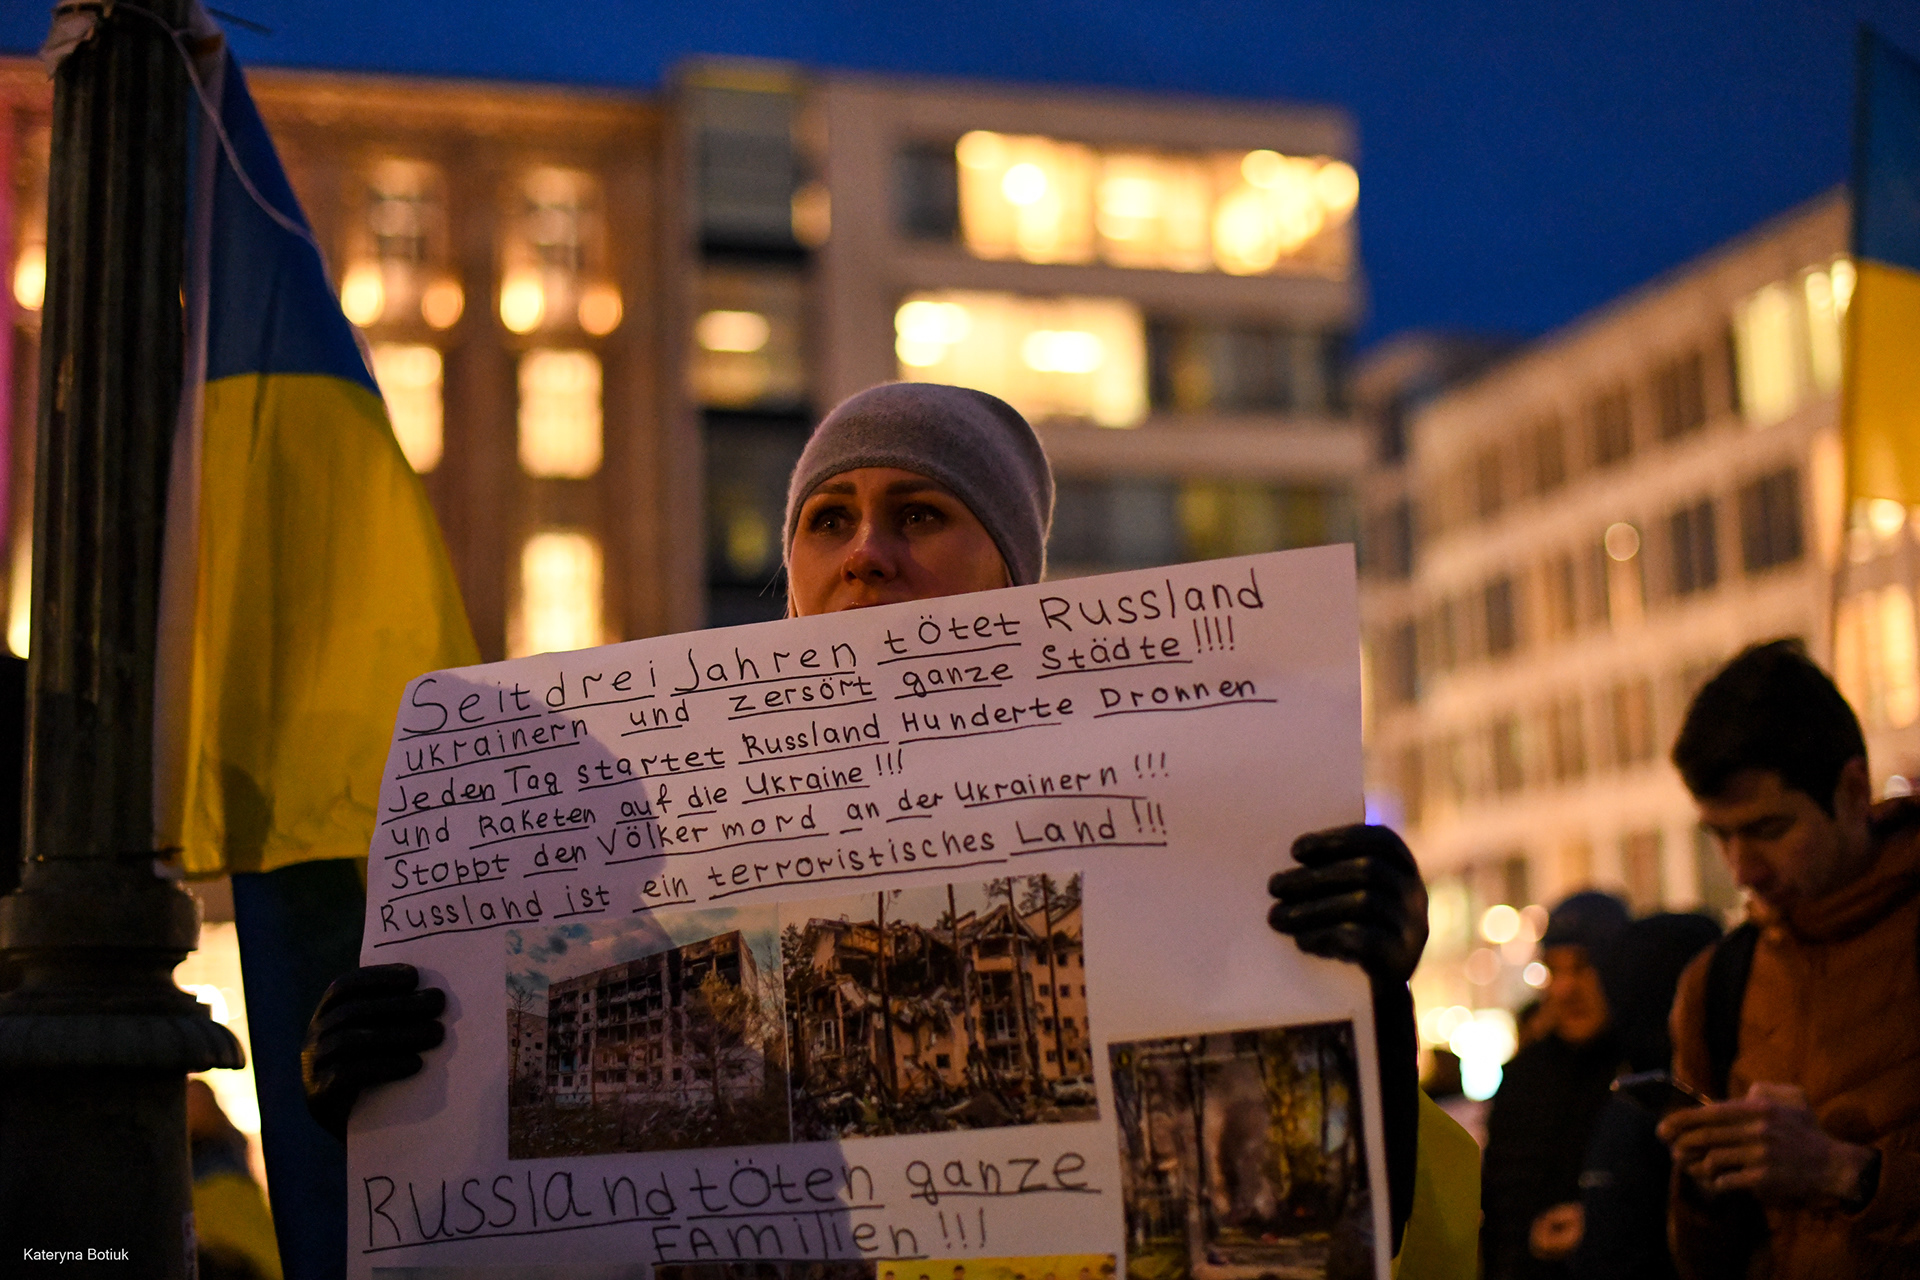 Seit drei Jahren tötet Russland
Ukrainern und zersört ganze Städte!!!!
Jeden Tag startet Russland Hunderte Dronnen
und Raketen auf die Ukraine!!!
Stoppt den Völkermord an der Ukrainern!!!
Russland ist ein terroristisches Land!!!
Russland töten ganze
Familien!!!
Kateryna Botiuk